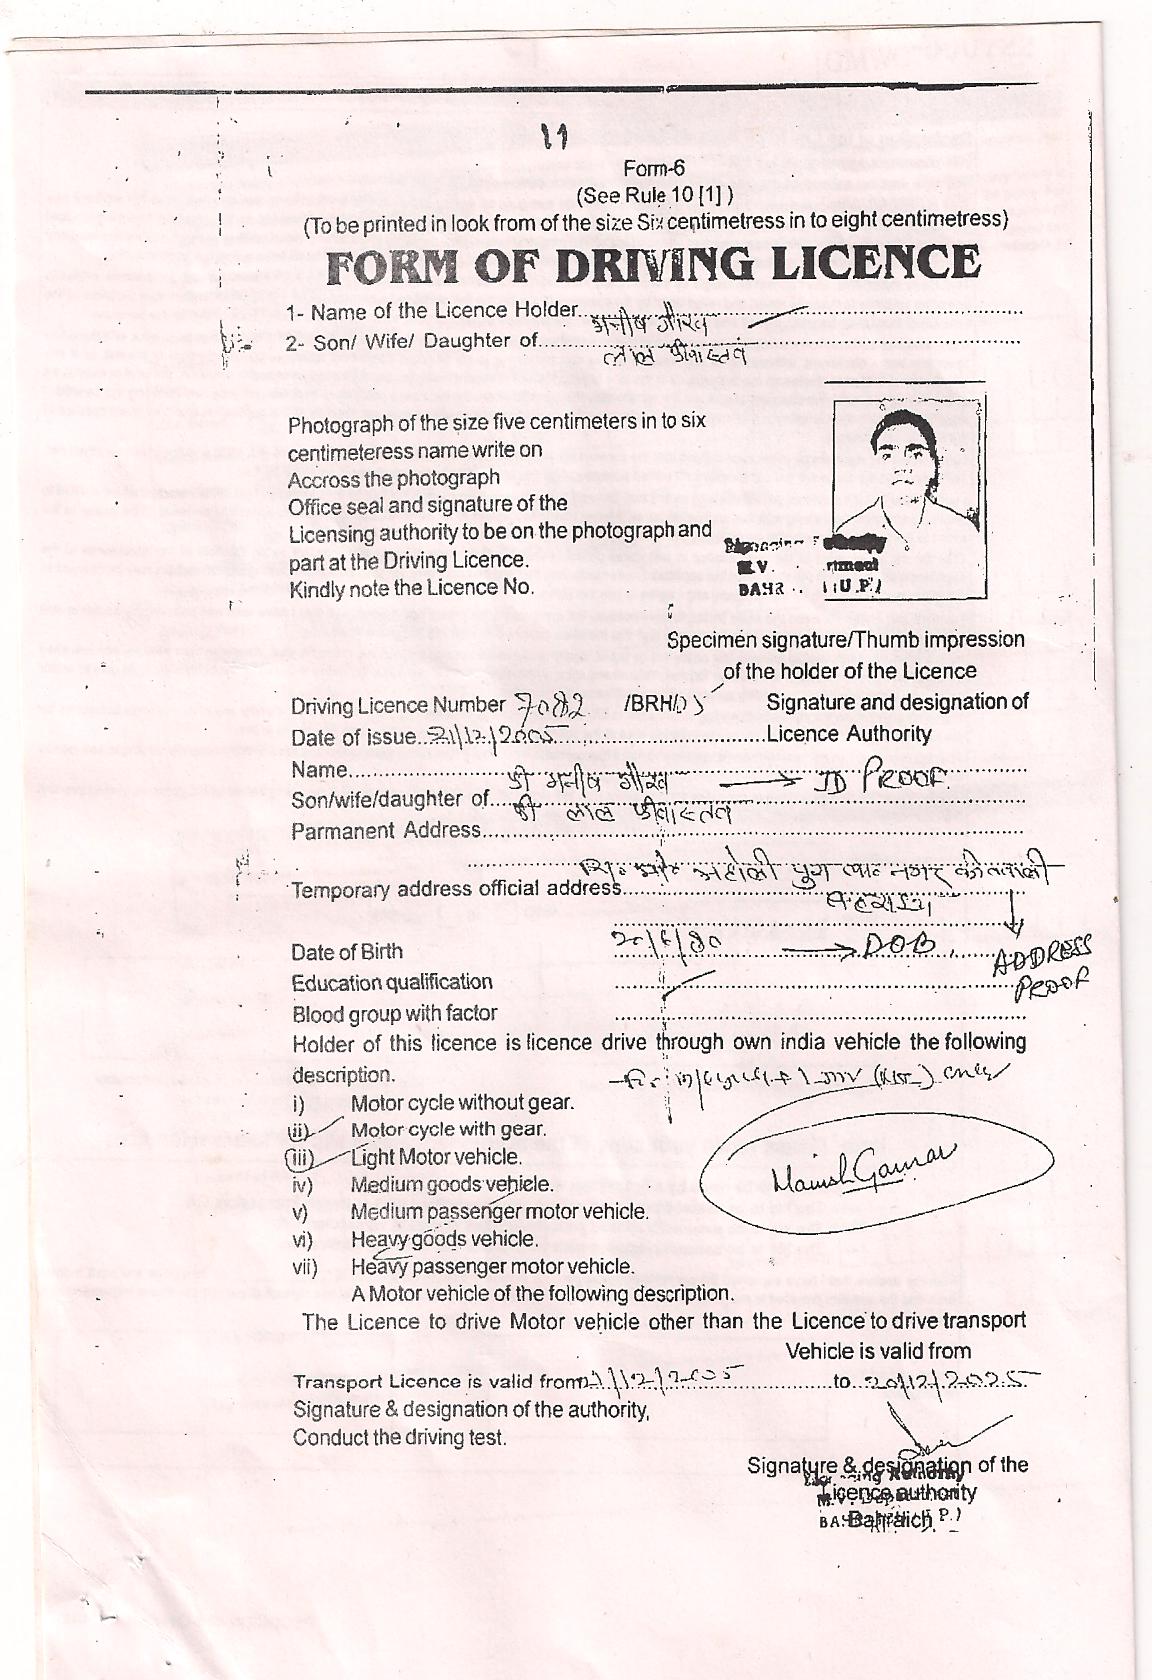 11
Form-6
(See Rule 10 [1] )
(To be printed in look from of the size Six centimetress in to eight centimetress)
FORM OF DRIVING LICENCE
1- Name of the Licence Holder मनीष गौरव
2- Son/ Wife/ Daughter of लाल श्रीवास्तव
Photograph of the size five centimeters in to six
centimeteress name write on
Accross the photograph
Office seal and signature of the
Licensing authority to be on the photograph and
part at the Driving Licence.
Kindly note the Licence No.
(U.P.)
Specimen signature/Thumb impression
of the holder of the Licence
Driving Licence Number 7082 /BRH/05 Signature and designation of
Date of issue 21/12/2005 Licence Authority
Name श्री मनीष गौरव → ID PROOF
Son/wife/daughter of श्री लाल श्रीवास्तव
Parmanent Address
नगर कोतवाली
Temporary address official address
बहराइच
Date of Birth → DOB
ADDRESS
PROOF
Education qualification
Blood group with factor
Holder of this licence is licence drive through own india vehicle the following
description. only
i) Motor cycle without gear.
(ii) Motor cycle with gear.
(iii) Light Motor vehicle.
iv) Medium goods vehicle.
v) Medium passenger motor vehicle.
vi) Heavy goods vehicle.
vii) Heavy passenger motor vehicle.
Manish Gaurav
A Motor vehicle of the following description.
The Licence to drive Motor vehicle other than the Licence to drive transport
Vehicle is valid from
Transport Licence is valid from 21/12/2005 to 20/12/2025
Signature & designation of the authority,
Conduct the driving test.
Signature & designation of the
Licence authority
Bahraich